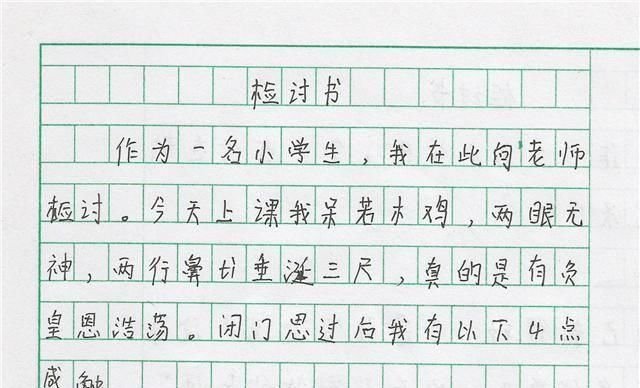 检讨书
作为一名小学生，我在此向老师
检讨。今天上课我呆若木鸡，两眼无
神，两行鼻ti垂涎三尺，真的是有负
皇恩浩荡。闭门思过后我有以下4点
感触